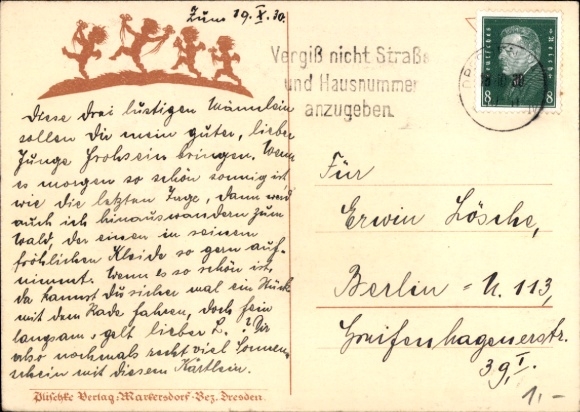 Zum 19. X. 30.
Diese drei lustigen Männlein
sollen Dir mein guter, lieber
Junge Frohsein bringen. Wenn
es morgen so schön sonnig ist
wie die letzten Tage, dann werd
auch ich hinauswandern zum
Wald, der einen in seinem
fröhlichen Kleide so gern auf-
nimmt. Wenn es so schön ist,
da kannst Du sicher mal ein Stück
mit dem Rade fahren, doch fein
langsam, gelt lieber L.? Dir
also nochmals recht viel Sonnen-
schein mit diesem Kärtlein.
Plischke Verlag: Markersdorf-Bez. Dresden.
Vergiß nicht Straße
und Hausnummer
anzugeben.
8 8
Für
Erwin Lösche,
Berlin-N. 113,
Greifenhagenerstr.
39, I.
1,-